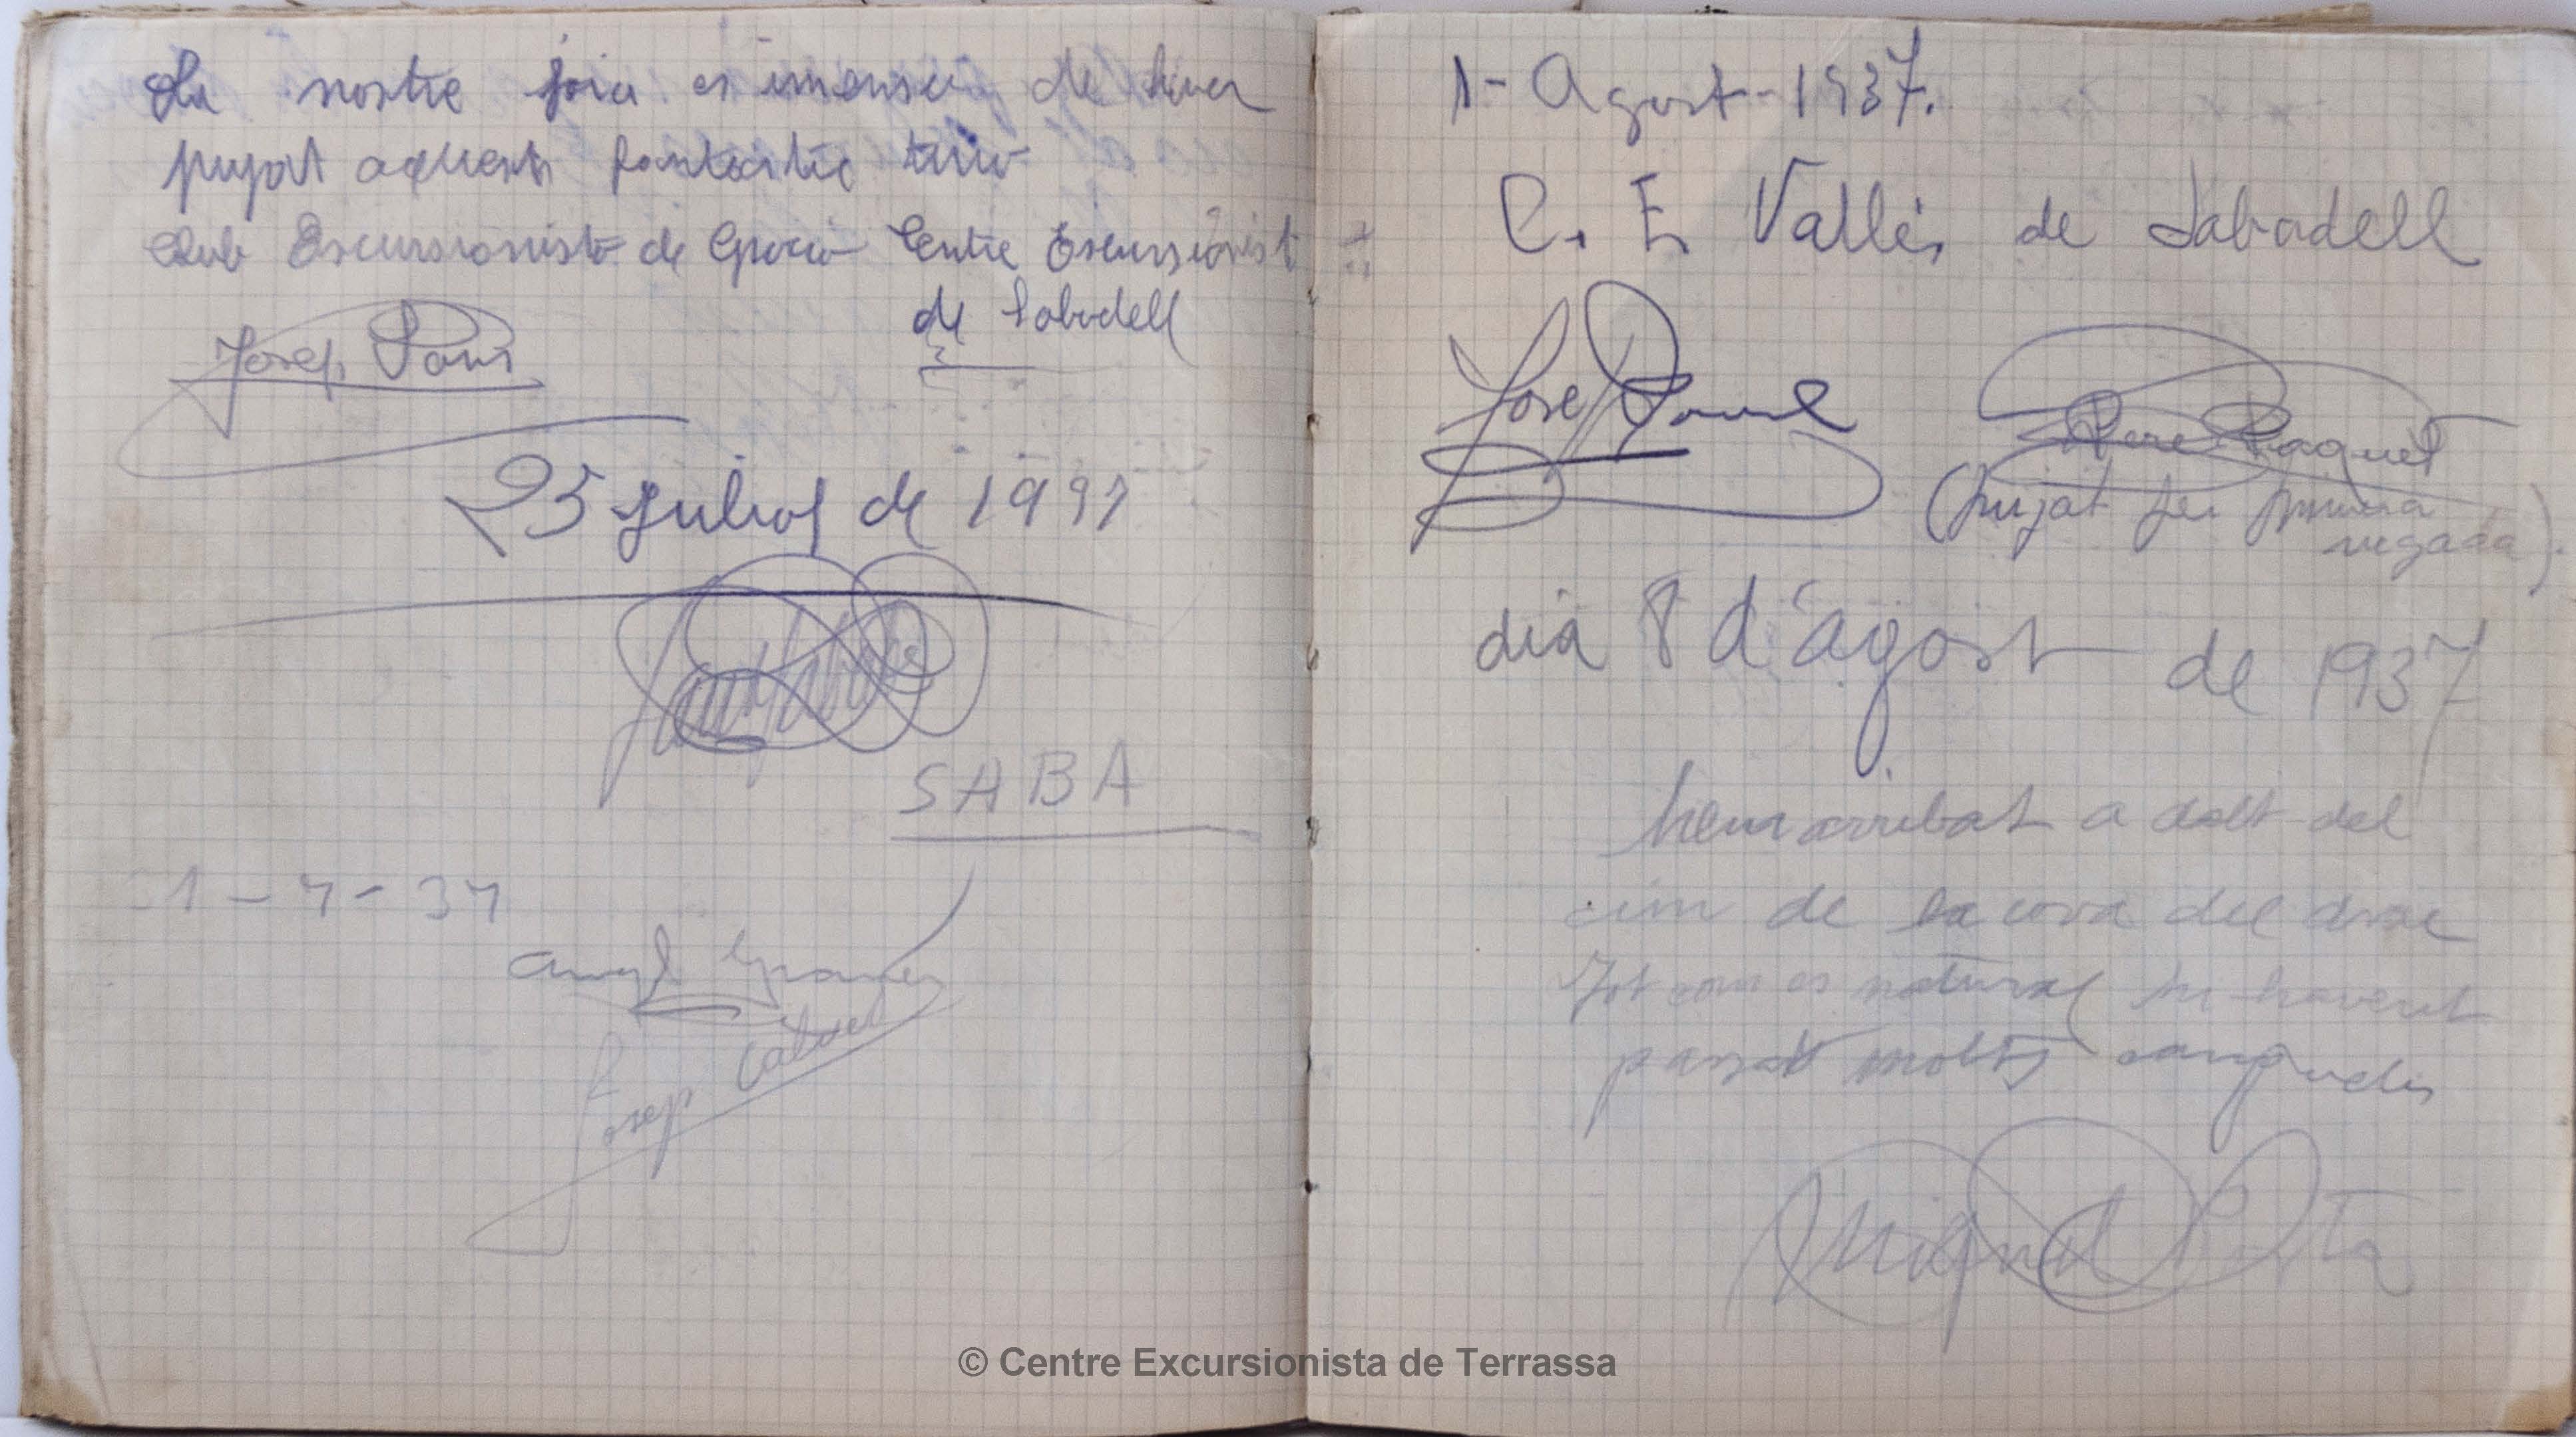 La nostre joia es imensa de haver
pujat aquest fantastic turo
Club Escursionista de Gracia Centre Escursionist
de Sabadell
Josep Pons
25 Juliol de 1937
SABA
1-7-37
Angel
Josep
1- Agost-1937.
C. E. Vallés de Sabadell
Josep
Pere Paquet
(pujat per primera
vegada).
dia 8 d'agost de 1937
hem arribat a dalt del
cim de la cova del drac
Tot com es natural
passat moltes
Miquel
© Centre Excursionista de Terrassa